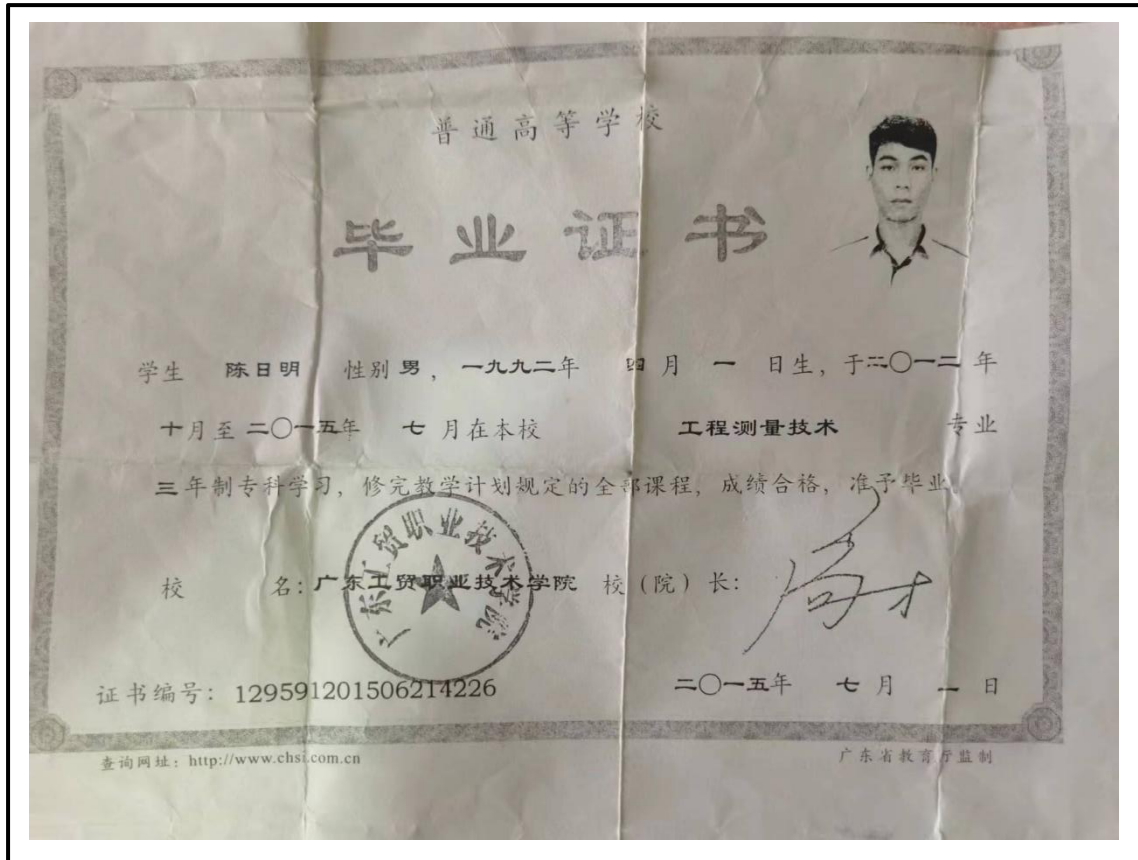 普通高等学校
毕业证书
学生 陈日明 性别 男，一九九二年 四 月 一 日生，于二〇一二 年
十月至 二〇一五年 七 月在本校 工程测量技术 专业
三 年制专科学习，修完教学计划规定的全部课程，成绩合格，准予毕业
校 名：广东工贸职业技术学院 校（院）长：
广东工贸职业技术学院
证书编号：129591201506214226 二〇一五年 七 月 一 日
查询网址：http://www.chsi.com.cn 广东省教育厅监制